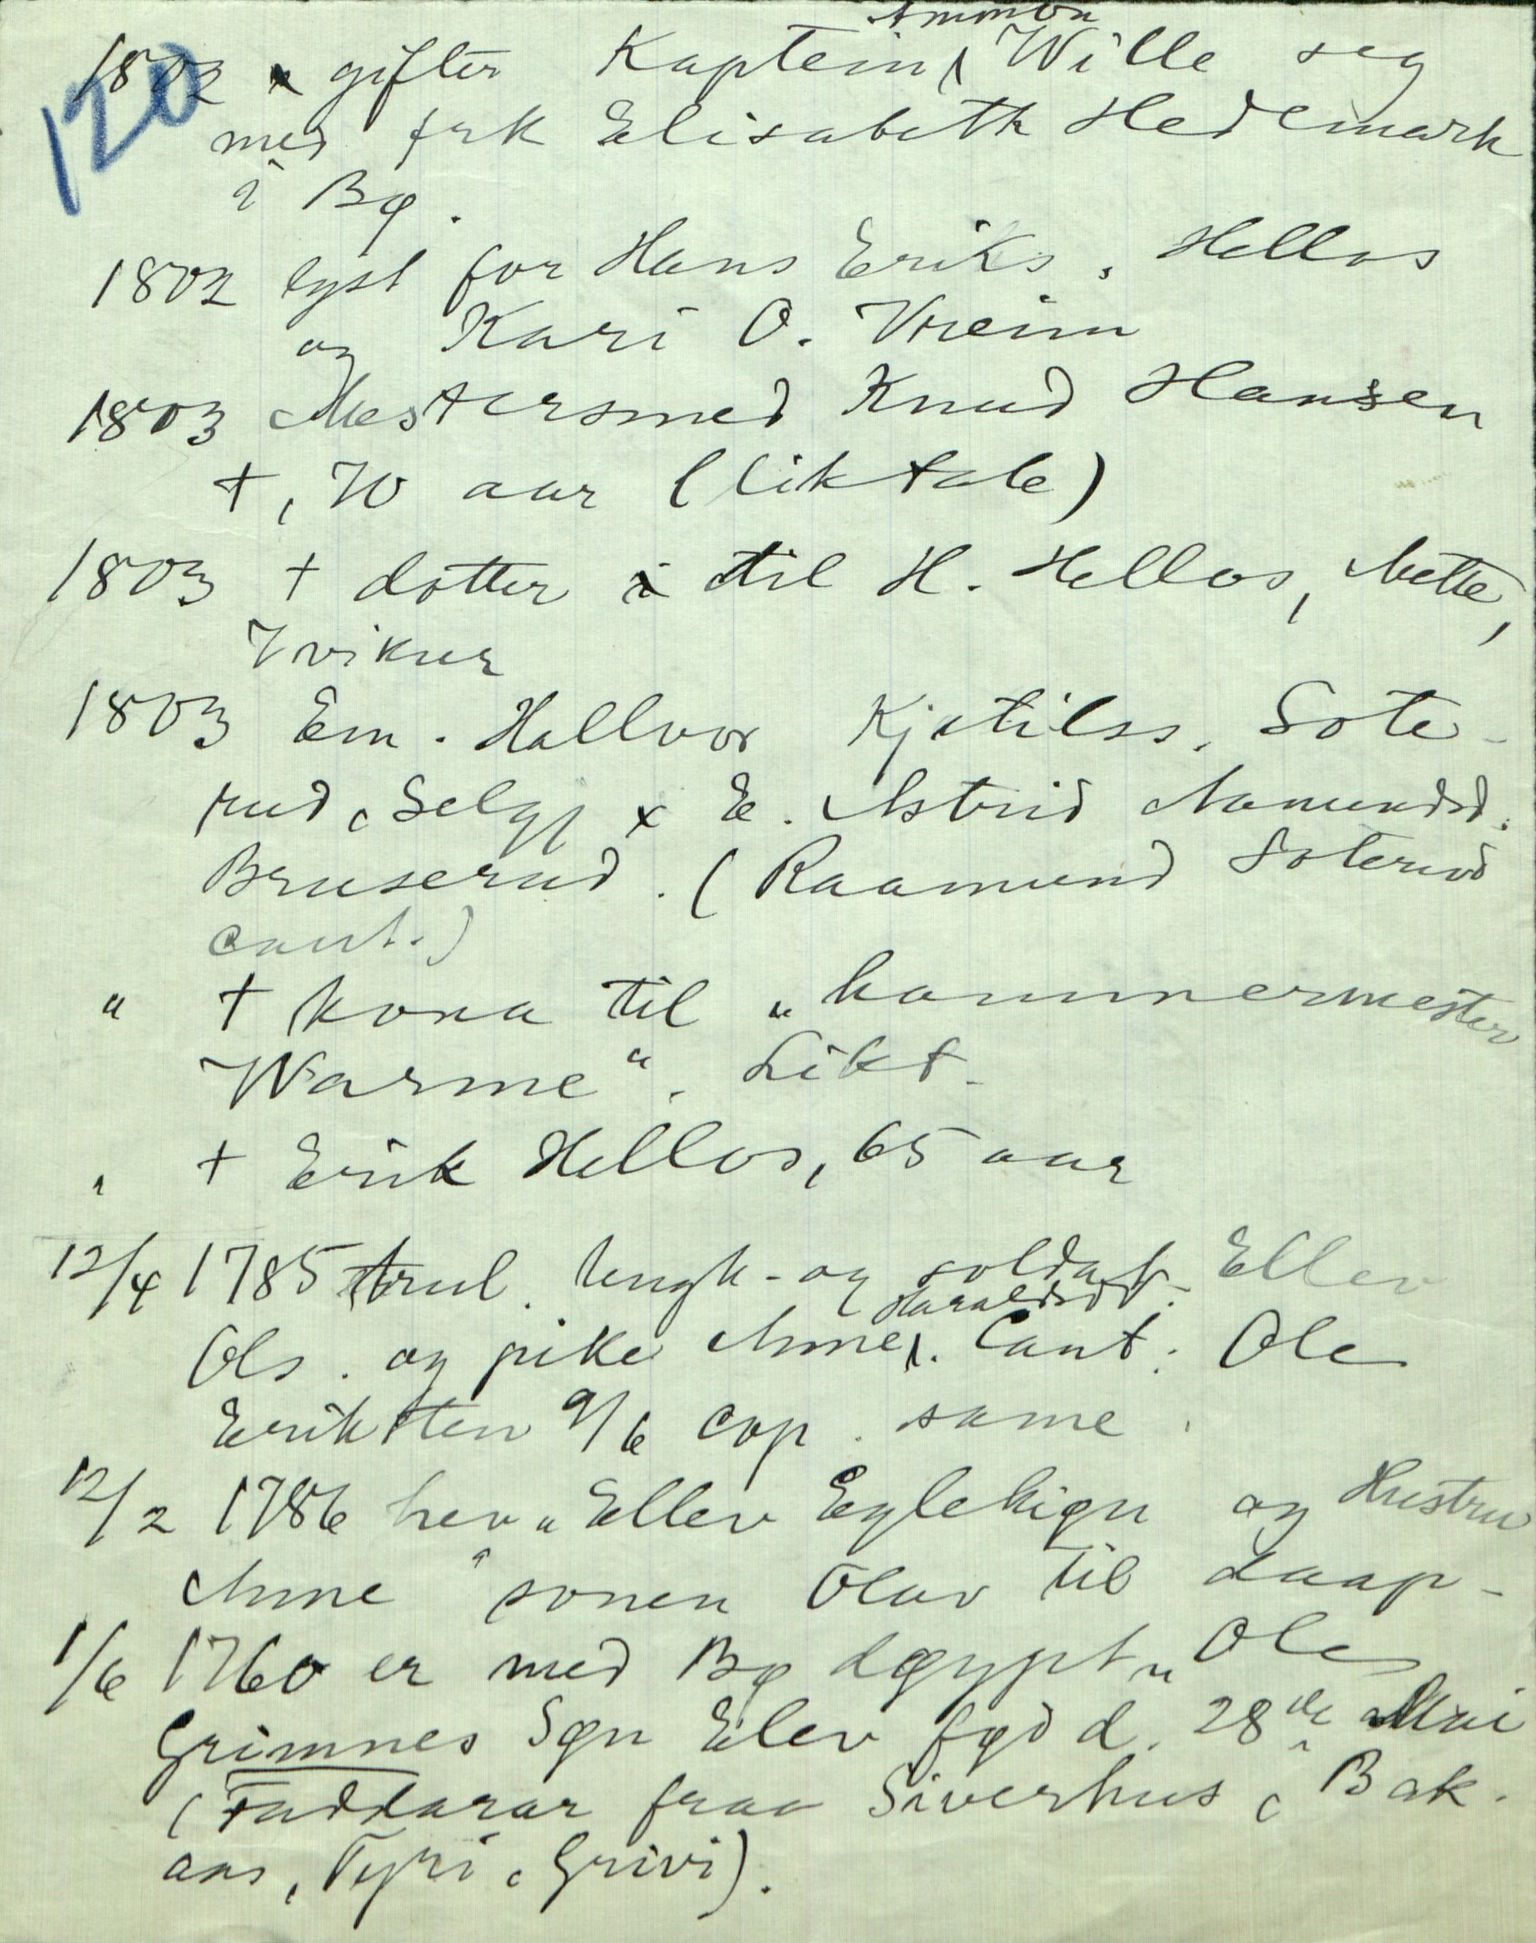 120
1802 gifter Kaptein Ammon Wille seg
med frk Elisabeth Hedemark
i Bø.
1802 lyst for Hans Eriks. Hellos
og Kari O. Vreim
1803 Mestersmed Knud Hansen
†, 70 aar (liktale)
1803 † dotter til H. Hellos, Mette,
7 vikur
1803 Em. Hallvor Kjetilss. Sote-
rud, Selgj x E. Astrid Aamundsd.
Bruserud. (Raamund Soterud
caut.)
" † kona til „hammermester
Warme“. Likt.
" † Erik Hellos, 65 aar
12/4 1785 trul. ungk- og soldat Ellev
Ols. og pike Anne Haraldsdt. Caut: Ole
Eriksten 9/6 cop. same.
12/2 1786 hev „Ellev Eglehign og Hustru
Anne“ sonen Olav til daap-
1/6 1760 er med Bø døypt „Ole
Grimnes Søn Elev fød d. 28de Mai
(Faddarar fraa Siverhus, Bak.
aas, Tyri, Grivi).